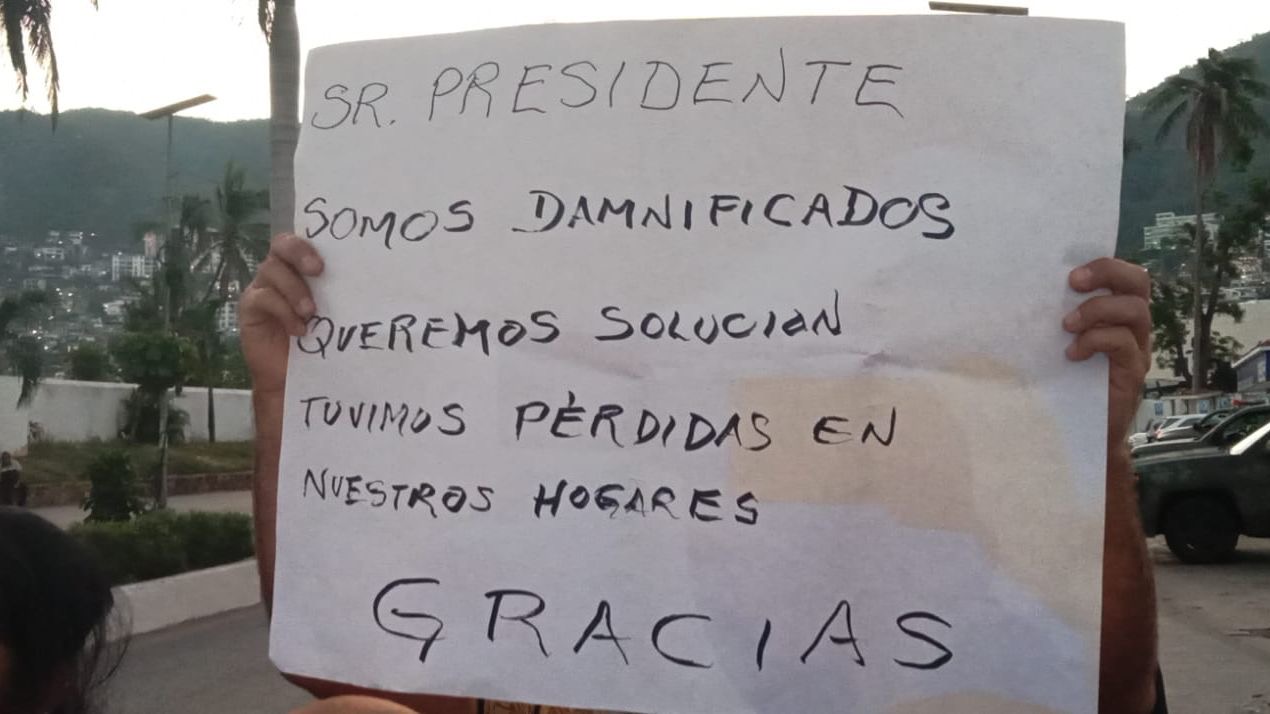 SR. PRESIDENTE
SOMOS DAMNIFICADOS
QUEREMOS SOLUCION
TUVIMOS PÉRDIDAS EN
NUESTROS HOGARES
GRACIAS